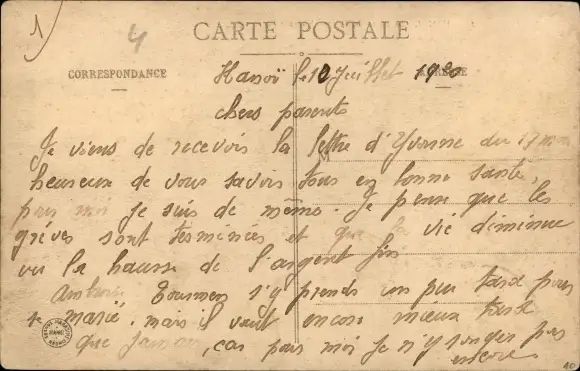 1
4
CARTE POSTALE
CORRESPONDANCE
Hanoï le 12 Juillet 1920
chers parents
Je viens de recevoir la lettre d'Yvonne du 17 mai
heureux de vous savoir tous en bonne santé,
pour moi je suis de même. Je pense que les
grèves sont terminées et que la vie diminue
vu la hausse de l'argent fin
s'y prends un peu tard pour
se marié. mais il vaut encore mieux tard
que jamais, car pour moi je n'y songes pas
encore